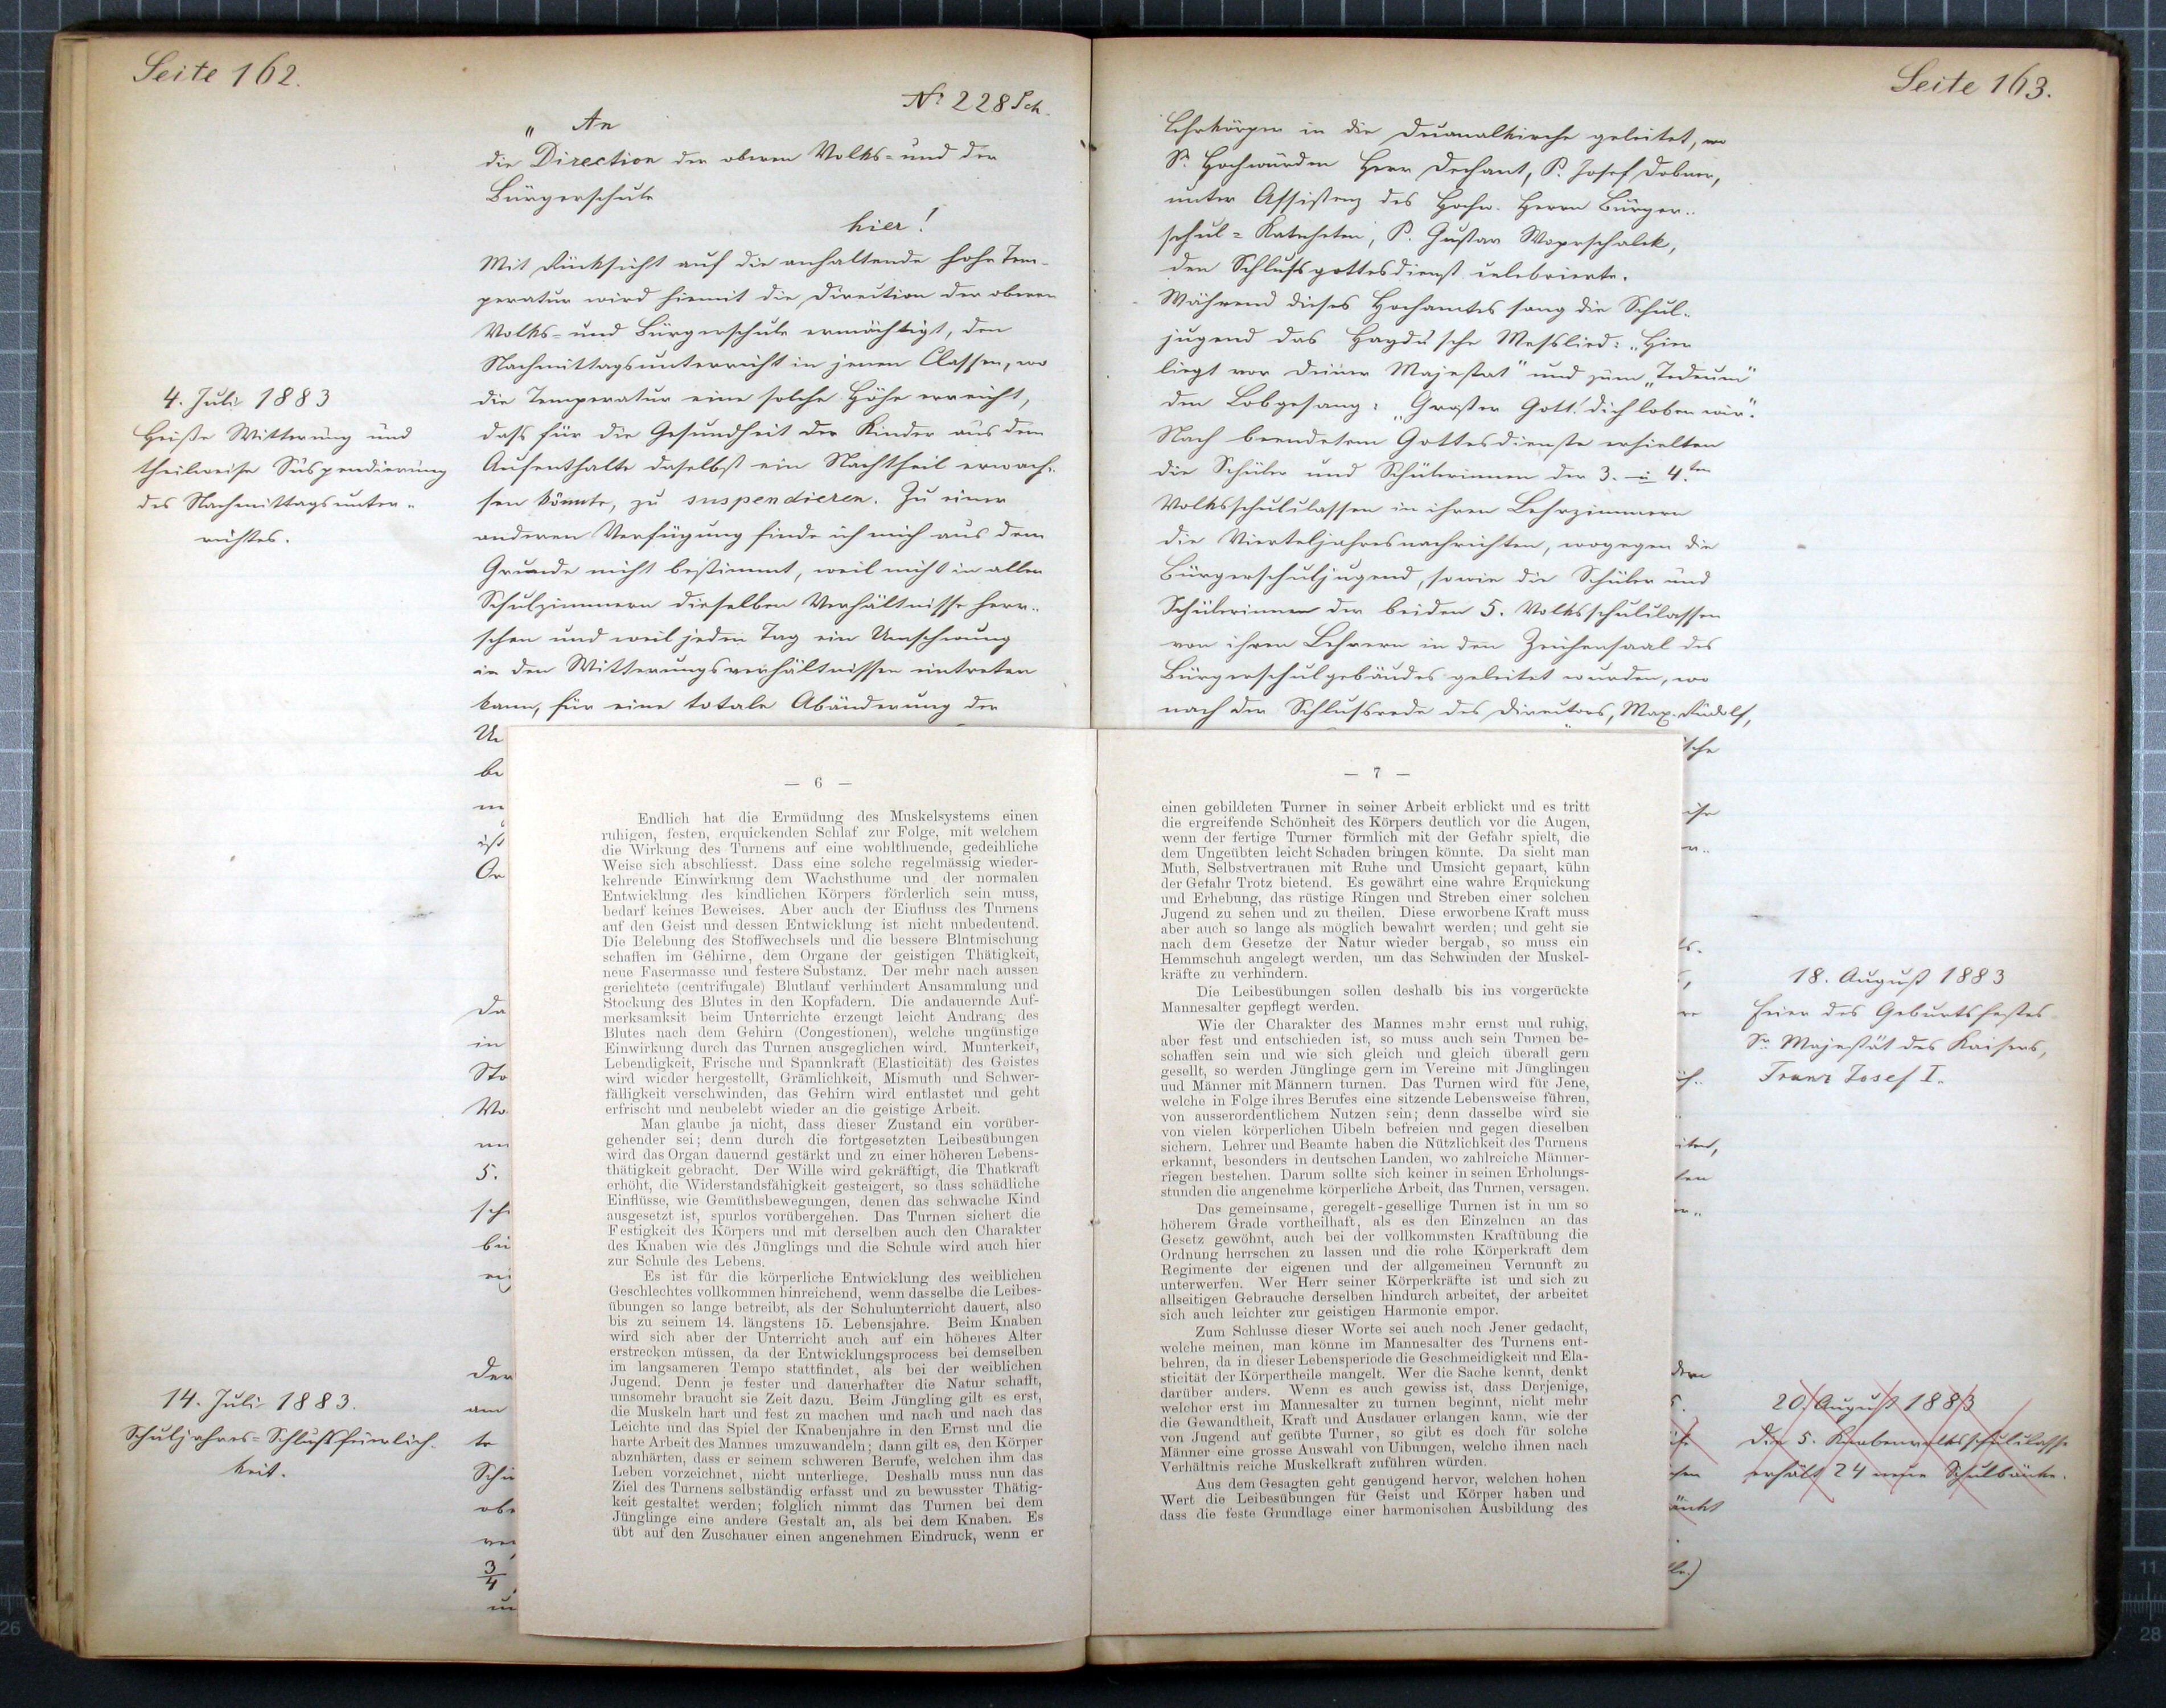 Seite 162.
Nº 228 Sch.
„ An
die Direction der oberen Volks- und der
Bürgerschule
hier!
Mit Rücksicht auf die anhaltende hohe Tem-
peratur wird hiemit die Direction der oberen
Volks- und Bürgerschule ermächtigt, den
Nachmittagsunterricht in jenen Classen, wo
die Temperatur eine solche Höhe erreicht,
dass für die Gesundheit der Kinder aus dem
Aufenthalte daselbst ein Nachtheil erwach-
sen könnte, zu suspendieren. Zu einer
anderen Verfügung finde ich mich aus dem
Grunde nicht bestimmt, weil nicht in allen
Schulzimmern dieselben Verhältnisse herr-
schen und weil jeden Tag ein Umschwung
in den Witterungsverhältnissen eintreten
kann, für eine totale Abänderung der
4. Juli 1883
Heiße Witterung und
theilweise Suspendierung
des Nachmittagsunter-
richtes.
14. Juli 1883.
Schuljahres-Schlussfeierlich-
keit.
— 6 —
Endlich hat die Ermüdung des Muskelsystems einen
ruhigen, festen, erquickenden Schlaf zur Folge, mit welchem
die Wirkung des Turnens auf eine wohlthuende, gedeihliche
Weise sich abschliesst. Dass eine solche regelmässig wieder-
kehrende Einwirkung dem Wachsthume und der normalen
Entwicklung des kindlichen Körpers förderlich sein muss,
bedarf keines Beweises. Aber auch der Einfluss des Turnens
auf den Geist und dessen Entwicklung ist nicht unbedeutend.
Die Belebung des Stoffwechsels und die bessere Blntmischung
schaffen im Gehirne, dem Organe der geistigen Thätigkeit,
neue Fasermasse und festere Substanz. Der mehr nach aussen
gerichtete (centrifugale) Blutlauf verhindert Ansammlung und
Stockung des Blutes in den Kopfadern. Die andauernde Auf-
merksamksit beim Unterrichte erzeugt leicht Andrang des
Blutes nach dem Gehirn (Congestionen), welche ungünstige
Einwirkung durch das Turnen ausgeglichen wird. Munterkeit,
Lebendigkeit, Frische und Spannkraft (Elasticität) des Geistes
wird wieder hergestellt, Grämlichkeit, Mismuth und Schwer-
fälligkeit verschwinden, das Gehirn wird entlastet und geht
erfrischt und neubelebt wieder an die geistige Arbeit.
Man glaube ja nicht, dass dieser Zustand ein vorüber-
gehender sei; denn durch die fortgesetzten Leibesübungen
wird das Organ dauernd gestärkt und zu einer höheren Lebens-
thätigkeit gebracht. Der Wille wird gekräftigt, die Thatkraft
erhöht, die Widerstandsfähigkeit gesteigert, so dass schädliche
Einflüsse, wie Gemüthsbewegungen, denen das schwache Kind
ausgesetzt ist, spurlos vorübergehen. Das Turnen sichert die
Festigkeit des Körpers und mit derselben auch den Charakter
des Knaben wie des Jünglings und die Schule wird auch hier
zur Schule des Lebens.
Es ist für die körperliche Entwicklung des weiblichen
Geschlechtes vollkommen hinreichend, wenn dasselbe die Leibes-
übungen so lange betreibt, als der Schulunterricht dauert, also
bis zu seinem 14. längstens 15. Lebensjahre. Beim Knaben
wird sich aber der Unterricht auch auf ein höheres Alter
erstrecken müssen, da der Entwicklungsprocess bei demselben
im langsameren Tempo stattfindet, als bei der weiblichen
Jugend. Denn je fester und dauerhafter die Natur schafft,
umsomehr braucht sie Zeit dazu. Beim Jüngling gilt es erst,
die Muskeln hart und fest zu machen und nach und nach das
Leichte und das Spiel der Knabenjahre in den Ernst und die
harte Arbeit des Mannes umzuwandeln; dann gilt es, den Körper
abzuhärten, dass er seinem schweren Berufe, welchen ihm das
Leben vorzeichnet, nicht unterliege. Deshalb muss nun das
Ziel des Turnens selbständig erfasst und zu bewusster Thätig-
keit gestaltet werden; folglich nimmt das Turnen bei dem
Jünglinge eine andere Gestalt an, als bei dem Knaben. Es
übt auf den Zuschauer einen angenehmen Eindruck, wenn er
Seite 163.
Lehrkörper in die Decanalkirche geleitet, wo
Sr. Hochwürden Herr Dechant, P. Josef Dobner,
unter Assistenz des Hochw. Herrn Bürger-
schul-Katecheten, P. Gustav Woprschalek,
den Schlussgottesdienst celebrierte.
Während dieses Hochamtes sang die Schul-
jugend das Haydn'sche Messlied: „Hier
liegt vor deiner Majestät" und zum „Tedeum"
den Lobgesang: „Großer Gott! dich loben wir".
Nach beendetem Gottesdienste erhielten
die Schüler und Schülerinnen der 3. u 4.ten
Volksschulclassen in ihren Lehrzimmern
die Vierteljahresnachrichten, wogegen die
Bürgerschuljugend, sowie die Schüler und
Schülerinnen der beiden 5. Volksschulclassen
von ihren Lehrern in den Zeichensaal des
Bürgerschulgebäudes geleitet wurden, wo
nach der Schlussrede des Directors, Max. Rudolf,
— 7 —
einen gebildeten Turner in seiner Arbeit erblickt und es tritt
die ergreifende Schönheit des Körpers deutlich vor die Augen,
wenn der fertige Turner förmlich mit der Gefahr spielt, die
dem Ungeübten leicht Schaden bringen könnte. Da sieht man
Muth, Selbstvertrauen mit Ruhe und Umsicht gepaart, kühn
der Gefahr Trotz bietend. Es gewährt eine wahre Erquickung
und Erhebung, das rüstige Ringen und Streben einer solchen
Jugend zu sehen und zu theilen. Diese erworbene Kraft muss
aber auch so lange als möglich bewahrt werden; und geht sie
nach dem Gesetze der Natur wieder bergab, so muss ein
Hemmschuh angelegt werden, um das Schwinden der Muskel-
kräfte zu verhindern.
Die Leibesübungen sollen deshalb bis ins vorgerückte
Mannesalter gepflegt werden.
Wie der Charakter des Mannes mehr ernst und ruhig,
aber fest und entschieden ist, so muss auch sein Turnen be-
schaffen sein und wie sich gleich und gleich überall gern
gesellt, so werden Jünglinge gern im Vereine mit Jünglingen
und Männer mit Männern turnen. Das Turnen wird für Jene,
welche in Folge ihres Berufes eine sitzende Lebensweise führen,
von ausserordentlichem Nutzen sein; denn dasselbe wird sie
von vielen körperlichen Uibeln befreien und gegen dieselben
sichern. Lehrer und Beamte haben die Nützlichkeit des Turnens
erkannt, besonders in deutschen Landen, wo zahlreiche Männer-
riegen bestehen. Darum sollte sich keiner in seinen Erholungs-
stunden die angenehme körperliche Arbeit, das Turnen, versagen.
Das gemeinsame, geregelt-gesellige Turnen ist in um so
höherem Grade vortheilhaft, als es den Einzelnen an das
Gesetz gewöhnt, auch bei der vollkommsten Kraftübung die
Ordnung herrschen zu lassen und die rohe Körperkraft dem
Regimente der eigenen und der allgemeinen Vernunft zu
unterwerfen. Wer Herr seiner Körperkräfte ist und sich zu
allseitigen Gebrauche derselben hindurch arbeitet, der arbeitet
sich auch leichter zur geistigen Harmonie empor.
Zum Schlusse dieser Worte sei auch noch Jener gedacht,
welche meinen, man könne im Mannesalter des Turnens ent-
behren, da in dieser Lebensperiode die Geschmeidigkeit und Ela-
sticität der Körpertheile mangelt. Wer die Sache kennt, denkt
darüber anders. Wenn es auch gewiss ist, dass Derjenige,
welcher erst im Mannesalter zu turnen beginnt, nicht mehr
die Gewandtheit, Kraft und Ausdauer erlangen kann, wie der
von Jugend auf geübte Turner, so gibt es doch für solche
Männer eine grosse Auswahl von Uibungen, welche ihnen nach
Verhältnis reiche Muskelkraft zuführen würden.
Aus dem Gesagten geht genügend hervor, welchen hohen
Wert die Leibesübungen für Geist und Körper haben und
dass die feste Grundlage einer harmonischen Ausbildung des
18. August 1883
Feier des Geburtsfestes
Sr. Majestät des Kaisers,
Franz Josef I.
20. August 1883
Die 5. Knabenvolksschulclasse
erhält 24 neue Schulbänke.